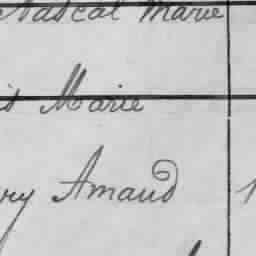 Pascal Marie
Marie
Amaud